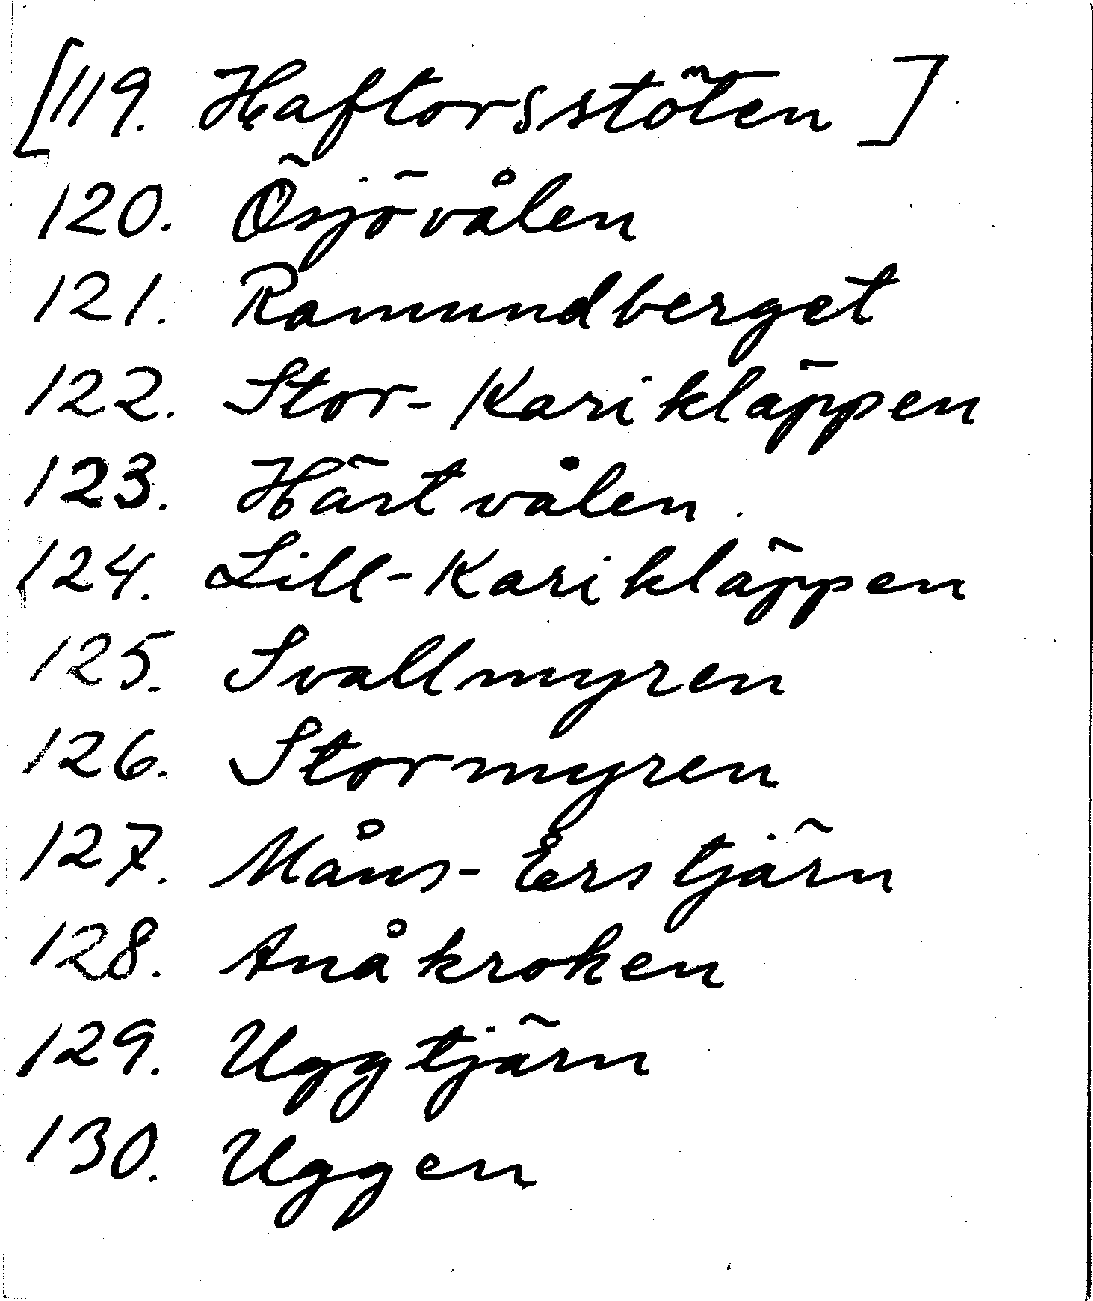 [119. Haftorsstöten]
120. Ösjövålen
121. Ramundberget
122. Stor-Karikläppen
123. Härtvålen
124. Lill-Karikläppen
125. Svallmyren
126. Stormyren
127. Måns-Ers tjärn
128. Anåkroken
129. Uggtjärn
130. Uggen